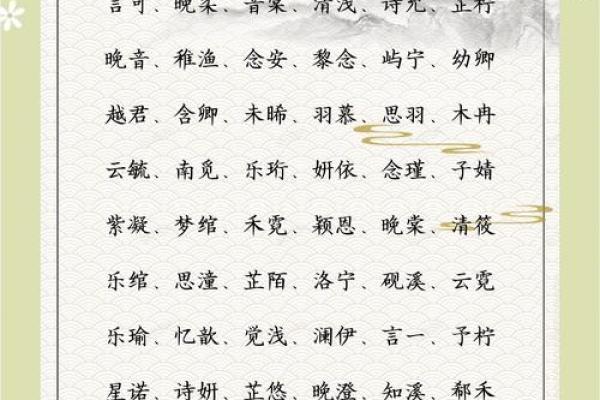 言可、晚柒、音棠、清浅、诗允、芷柠
晚音、稚渔、念安、黎念、屿宁、幼卿
越君、含卿、未晞、羽慕、思羽、木冉
云毓、南觅、乐珩、妍依、念瑾、子婧
紫凝、梦绾、禾霓、颖恩、晚棠、清筱
乐绾、思潼、芷陌、洛宁、砚溪、云霓
乐瑜、忆歆、觉浅、澜伊、言一、予柠
星诺、诗妍、芷悠、晚澄、知溪、郗禾